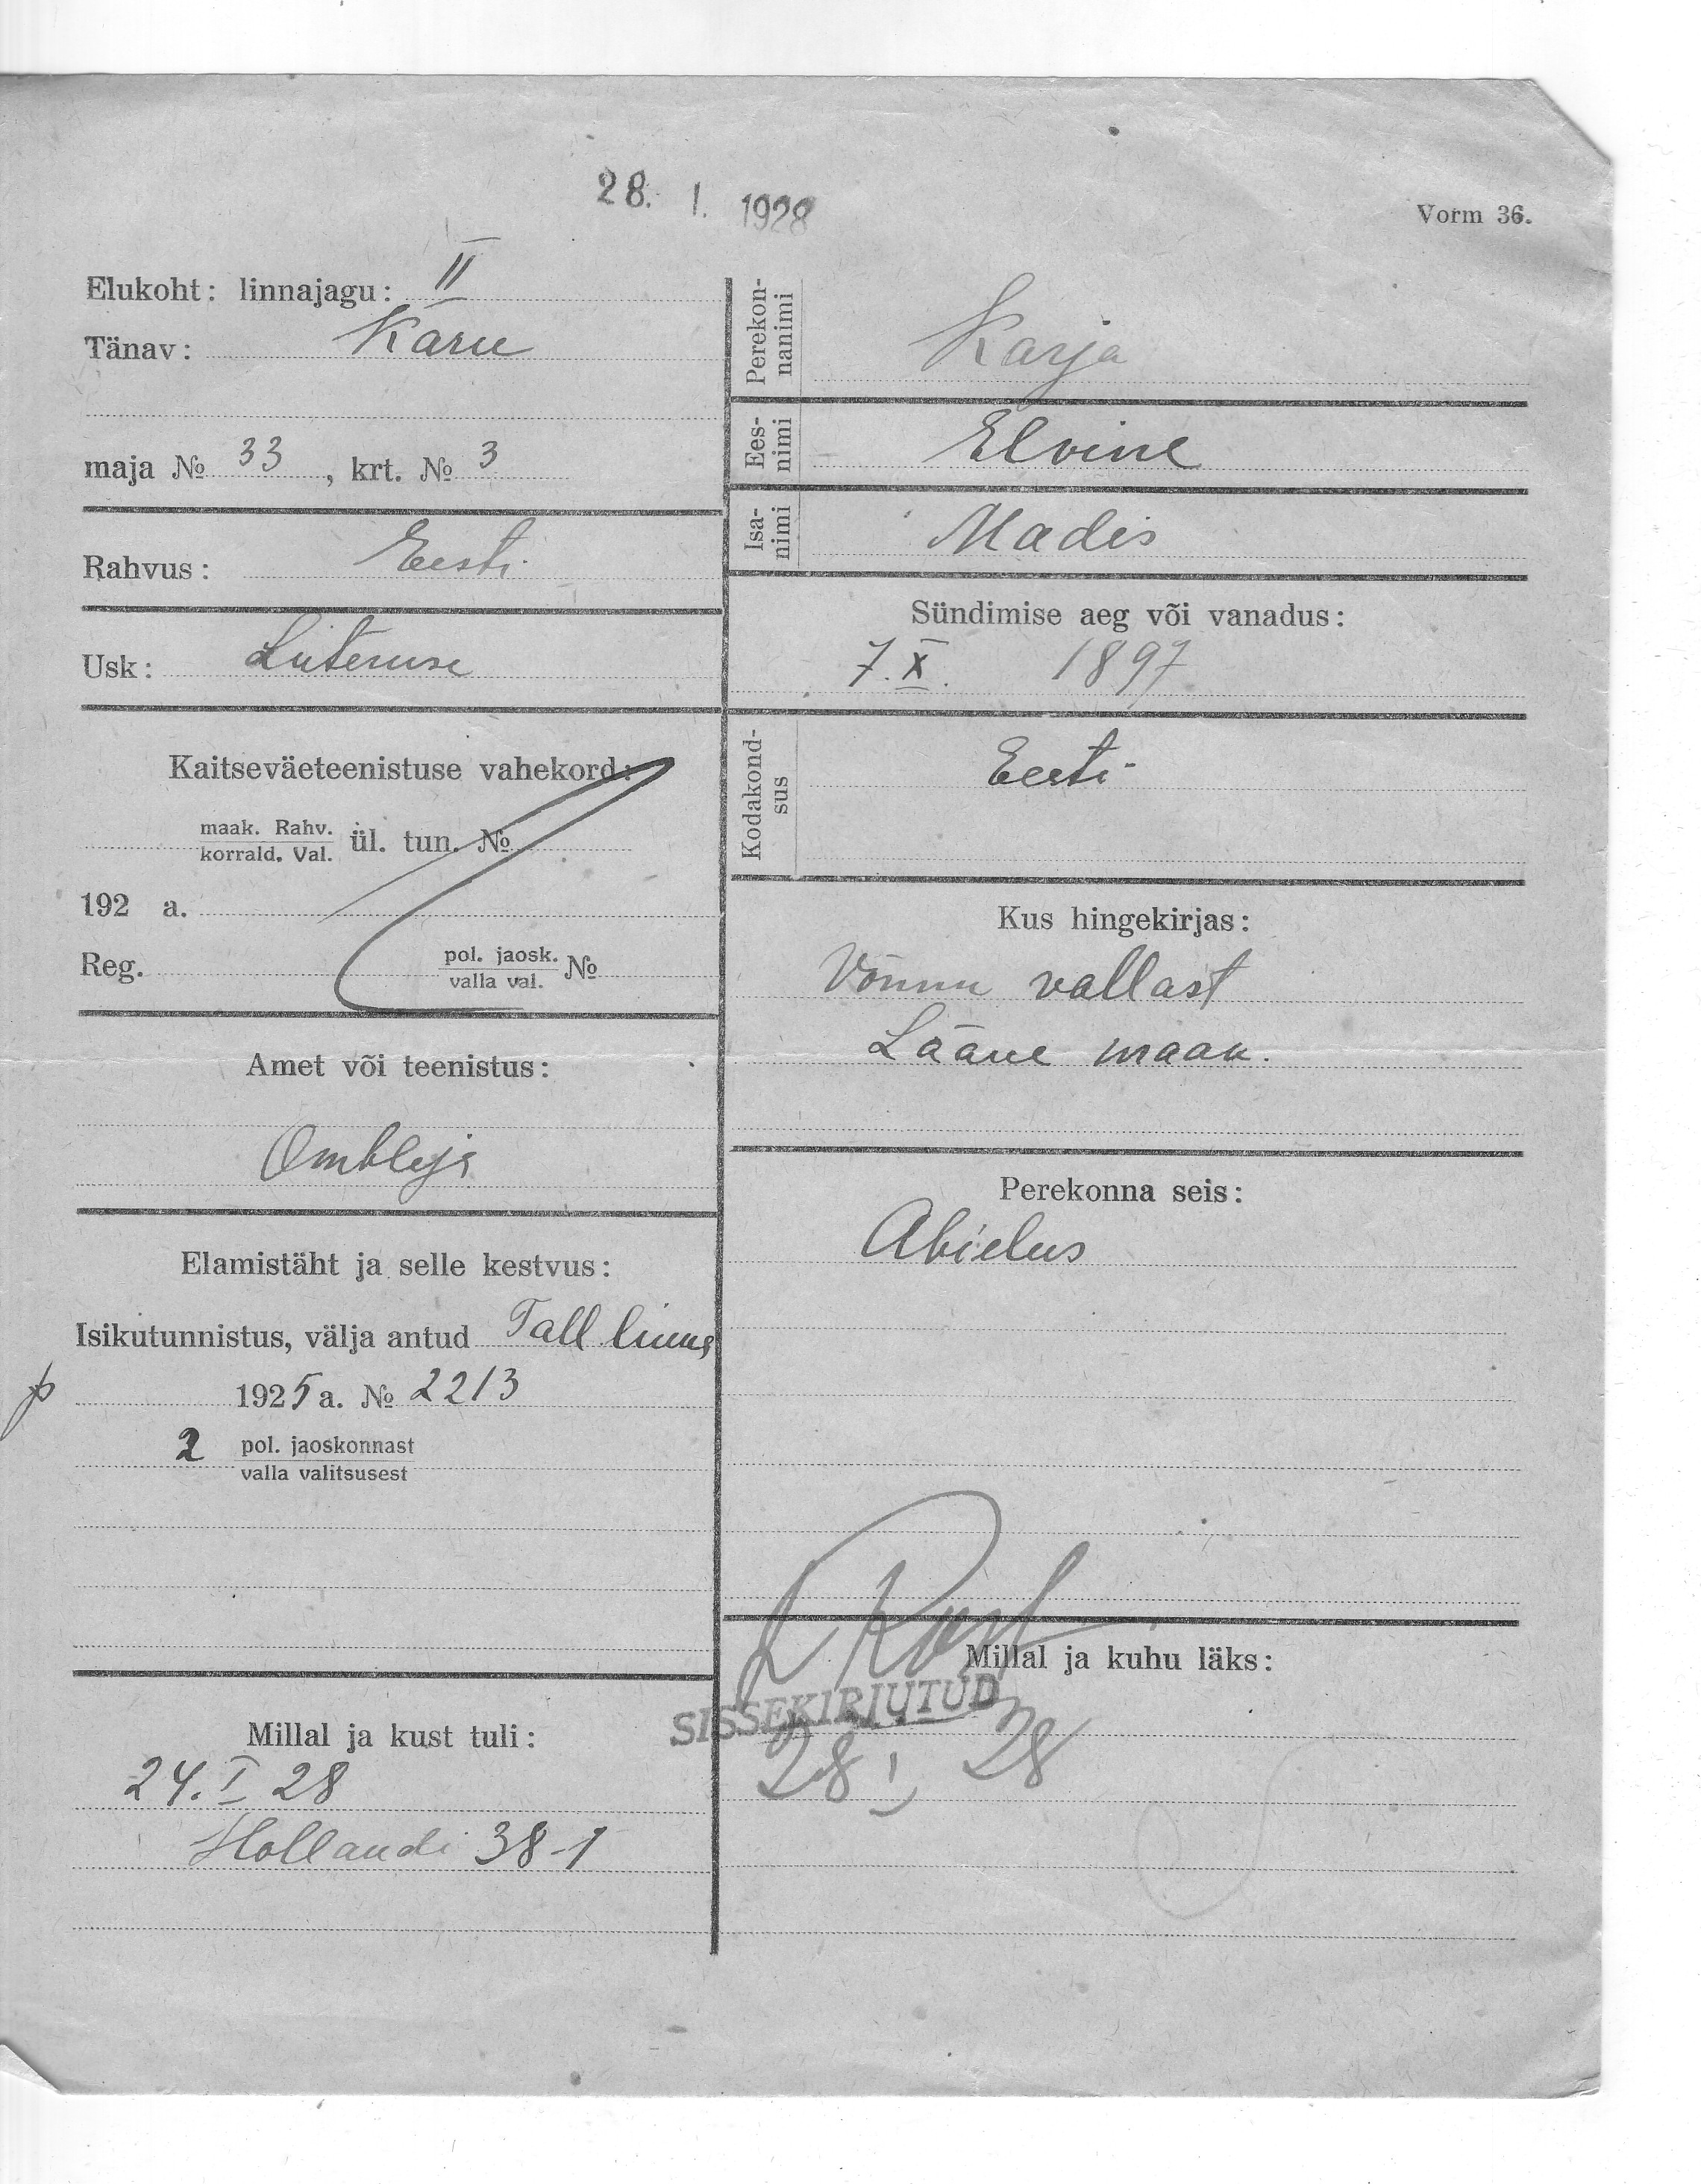 28. I. 1928
Vorm 36.
Elukoht: linnajagu: II
Tänav: Karu
maja № 33, krt. № 3
Rahvus: Eesti
Usk: Luteruse
Kaitseväeteenistuse vahekord:
maak. Rahv.
korrald. Val. ül. tun. №
192 a.
Reg. pol. jaosk.
valla val. №
Amet või teenistus:
Ombleja
Elamistäht ja selle kestvus:
Isikutunnistus, välja antud Tall linna
p
1925 a. № 2213
2 pol. jaoskonnast
valla valitsusest
Millal ja kust tuli:
24. I 28
Hollandi 38-1
Perekon-
nanimi
Karja
Ees-
nimi
Elvine
Isa-
nimi
Madis
Sündimise aeg või vanadus:
7. X. 1897
Kodakond-
sus
Eesti
Kus hingekirjas:
Võnnu vallast
Lääne maak.
Perekonna seis:
Abielus
Millal ja kuhu läks:
SISSEKIRJUTUD
28 I 28